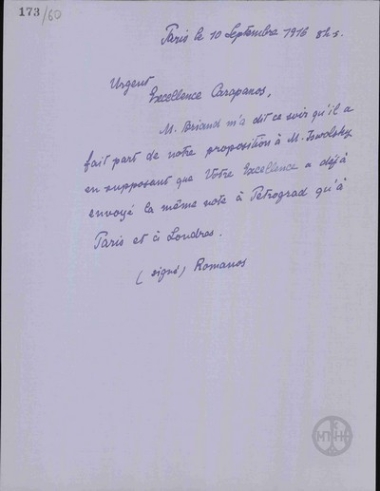 173/60
Paris le 10 Septembre 1916 8h s.
Urgent
Excellence Carapanos,
M. Briand m'a dit ce soir qu'il a
fait part de notre proposition à M. Iswolsky
en supposant que Votre Excellence a déjà
envoyé la même note à Pétrograd qu'à
Paris et à Londres.
(signé) Romanos